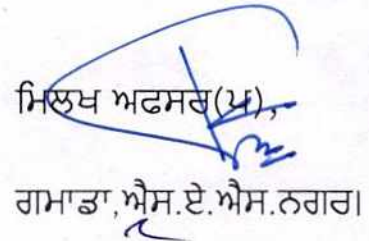 ਮਿਲਖ ਅਫਸਰ(ਪ),
ਗਮਾਡਾ,ਐਸ.ਏ.ਐਸ.ਨਗਰ।